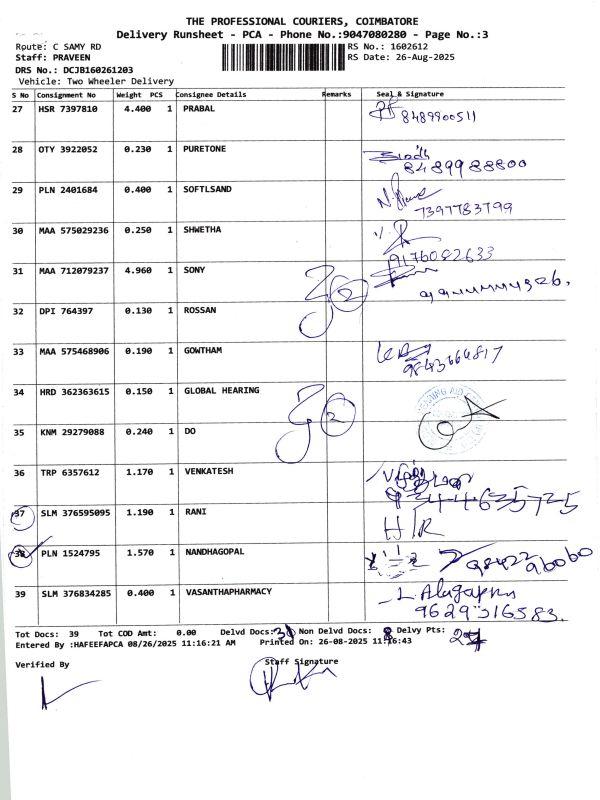 THE PROFESSIONAL COURIERS, COIMBATORE
Delivery Runsheet - PCA - Phone No.:9047080280 - Page No.:3
Route: C SAMY RD
RS No.: 1602612
Staff: PRAVEEN
RS Date: 26-Aug-2025
DRS No.: DCJB160261203
Vehicle: Two Wheeler Delivery
S No Consignment No Weight PCS Consignee Details Remarks Seal & Signature
27 HSR 7397810 4.400 1 PRABAL
8489900511
28 OTY 3922052 0.230 1 PURETONE
8489988800
29 PLN 2401684 0.400 1 SOFTLSAND
7397783799
30 MAA 575029236 0.250 1 SHWETHA
9176082633
31 MAA 712079237 4.960 1 SONY
2
32 DPI 764397 0.130 1 ROSSAN
33 MAA 575468906 0.190 1 GOWTHAM
34 HRD 362363615 0.150 1 GLOBAL HEARING
2
35 KNM 29279088 0.240 1 DO
36 TRP 6357612 1.170 1 VENKATESH
37 SLM 376595095 1.190 1 RANI
H/R
38 PLN 1524795 1.570 1 NANDHAGOPAL
39 SLM 376834285 0.400 1 VASANTHAPHARMACY
L. Alagappan
9629316583.
Tot Docs: 39 Tot COD Amt: 0.00 Delvd Docs: Non Delvd Docs: 8 Delvy Pts:
Entered By :HAFEEFAPCA 08/26/2025 11:16:21 AM Printed On: 26-08-2025 11:16:43
Verified By
Staff Signature